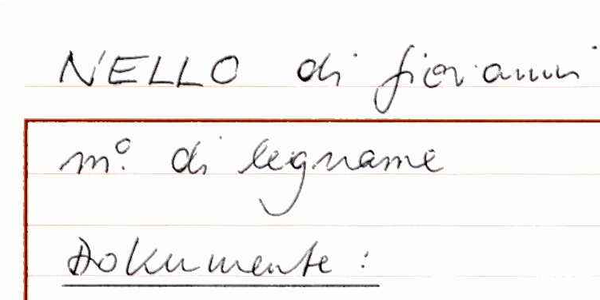 NELLO di giovanni
m° di legname
Dokumente: